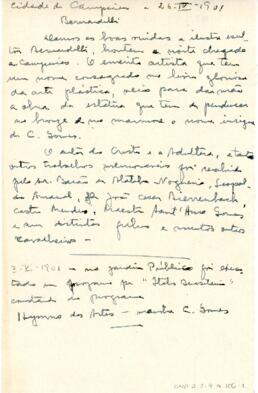 Cidade de Campinas - 26-IV-1901
Bernardelli
Damos as boas vindas a ilustre escul-
tor Bernardelli, hontem a noite chegado
a Campinas. O emerito artista que tem
um nome consagrado no livro glorioso
da arte plastica, veio para dar mãos
a obra da estatua que tem de perdurar
no bronze e no marmore o nome insigne
de C. Gomes.
O autor do Cristo e a Adultera, e tantos
outros trabalhos memoraveis foi recebido
pelo sr. Barão de Ataliba Nogueira, Leopol-
do Amaral, José Cesar Bierrenbach,
Castro Mendes, Maestro Sant'Anna Gomes
e sua distinta familia e muitos outros
cavalheiros -
3-XI-1901 - no Jardim Publico foi execu-
tado um programa por "Italo Brasileira"
constando do programa
Hymno das Artes - marcha C. Gomes